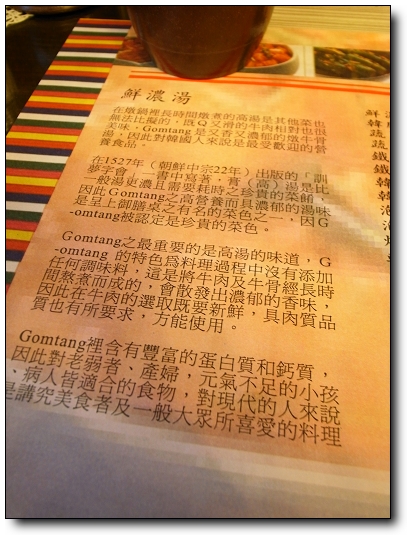 鮮濃湯
在燉鍋裡長時間燉煮的高湯是其他菜也
無法比擬的，既Q又滑的牛肉相對也很
美味，Gomtang是又香又濃郁的燉牛骨
湯，因此對韓國人來說是最受歡迎的營
養食品。
在1527年（朝鮮中宗22年）出版的「訓
夢字會」一書中寫著，膏（高）湯是比
一般湯更濃且需要耗時之珍貴的菜餚，
因此Gomtang之高營養而具濃郁的湯味
是呈上御膳桌之有名的菜色之一，因G
-omtang被認定是珍貴的菜色。
Gomtang之最重要的是高湯的味道，G
-omtang 的特色為料理過程中沒有添加
任何調味料，這是將牛肉及牛骨經長時
間熬煮而成的，會散發出濃郁的香味，
因此在牛肉的選取既要新鮮，具肉質品
質也有所要求，方能使用。
Gomtang裡含有豐富的蛋白質和鈣質，
因此對老弱者、產婦，元氣不足的小孩
、病人皆適合的食物，對現代的人來說
是講究美食者及一般大眾所喜愛的料理
鮮
韓
蔬
蔬
鐵
鐵
韓
韓
泡
泡